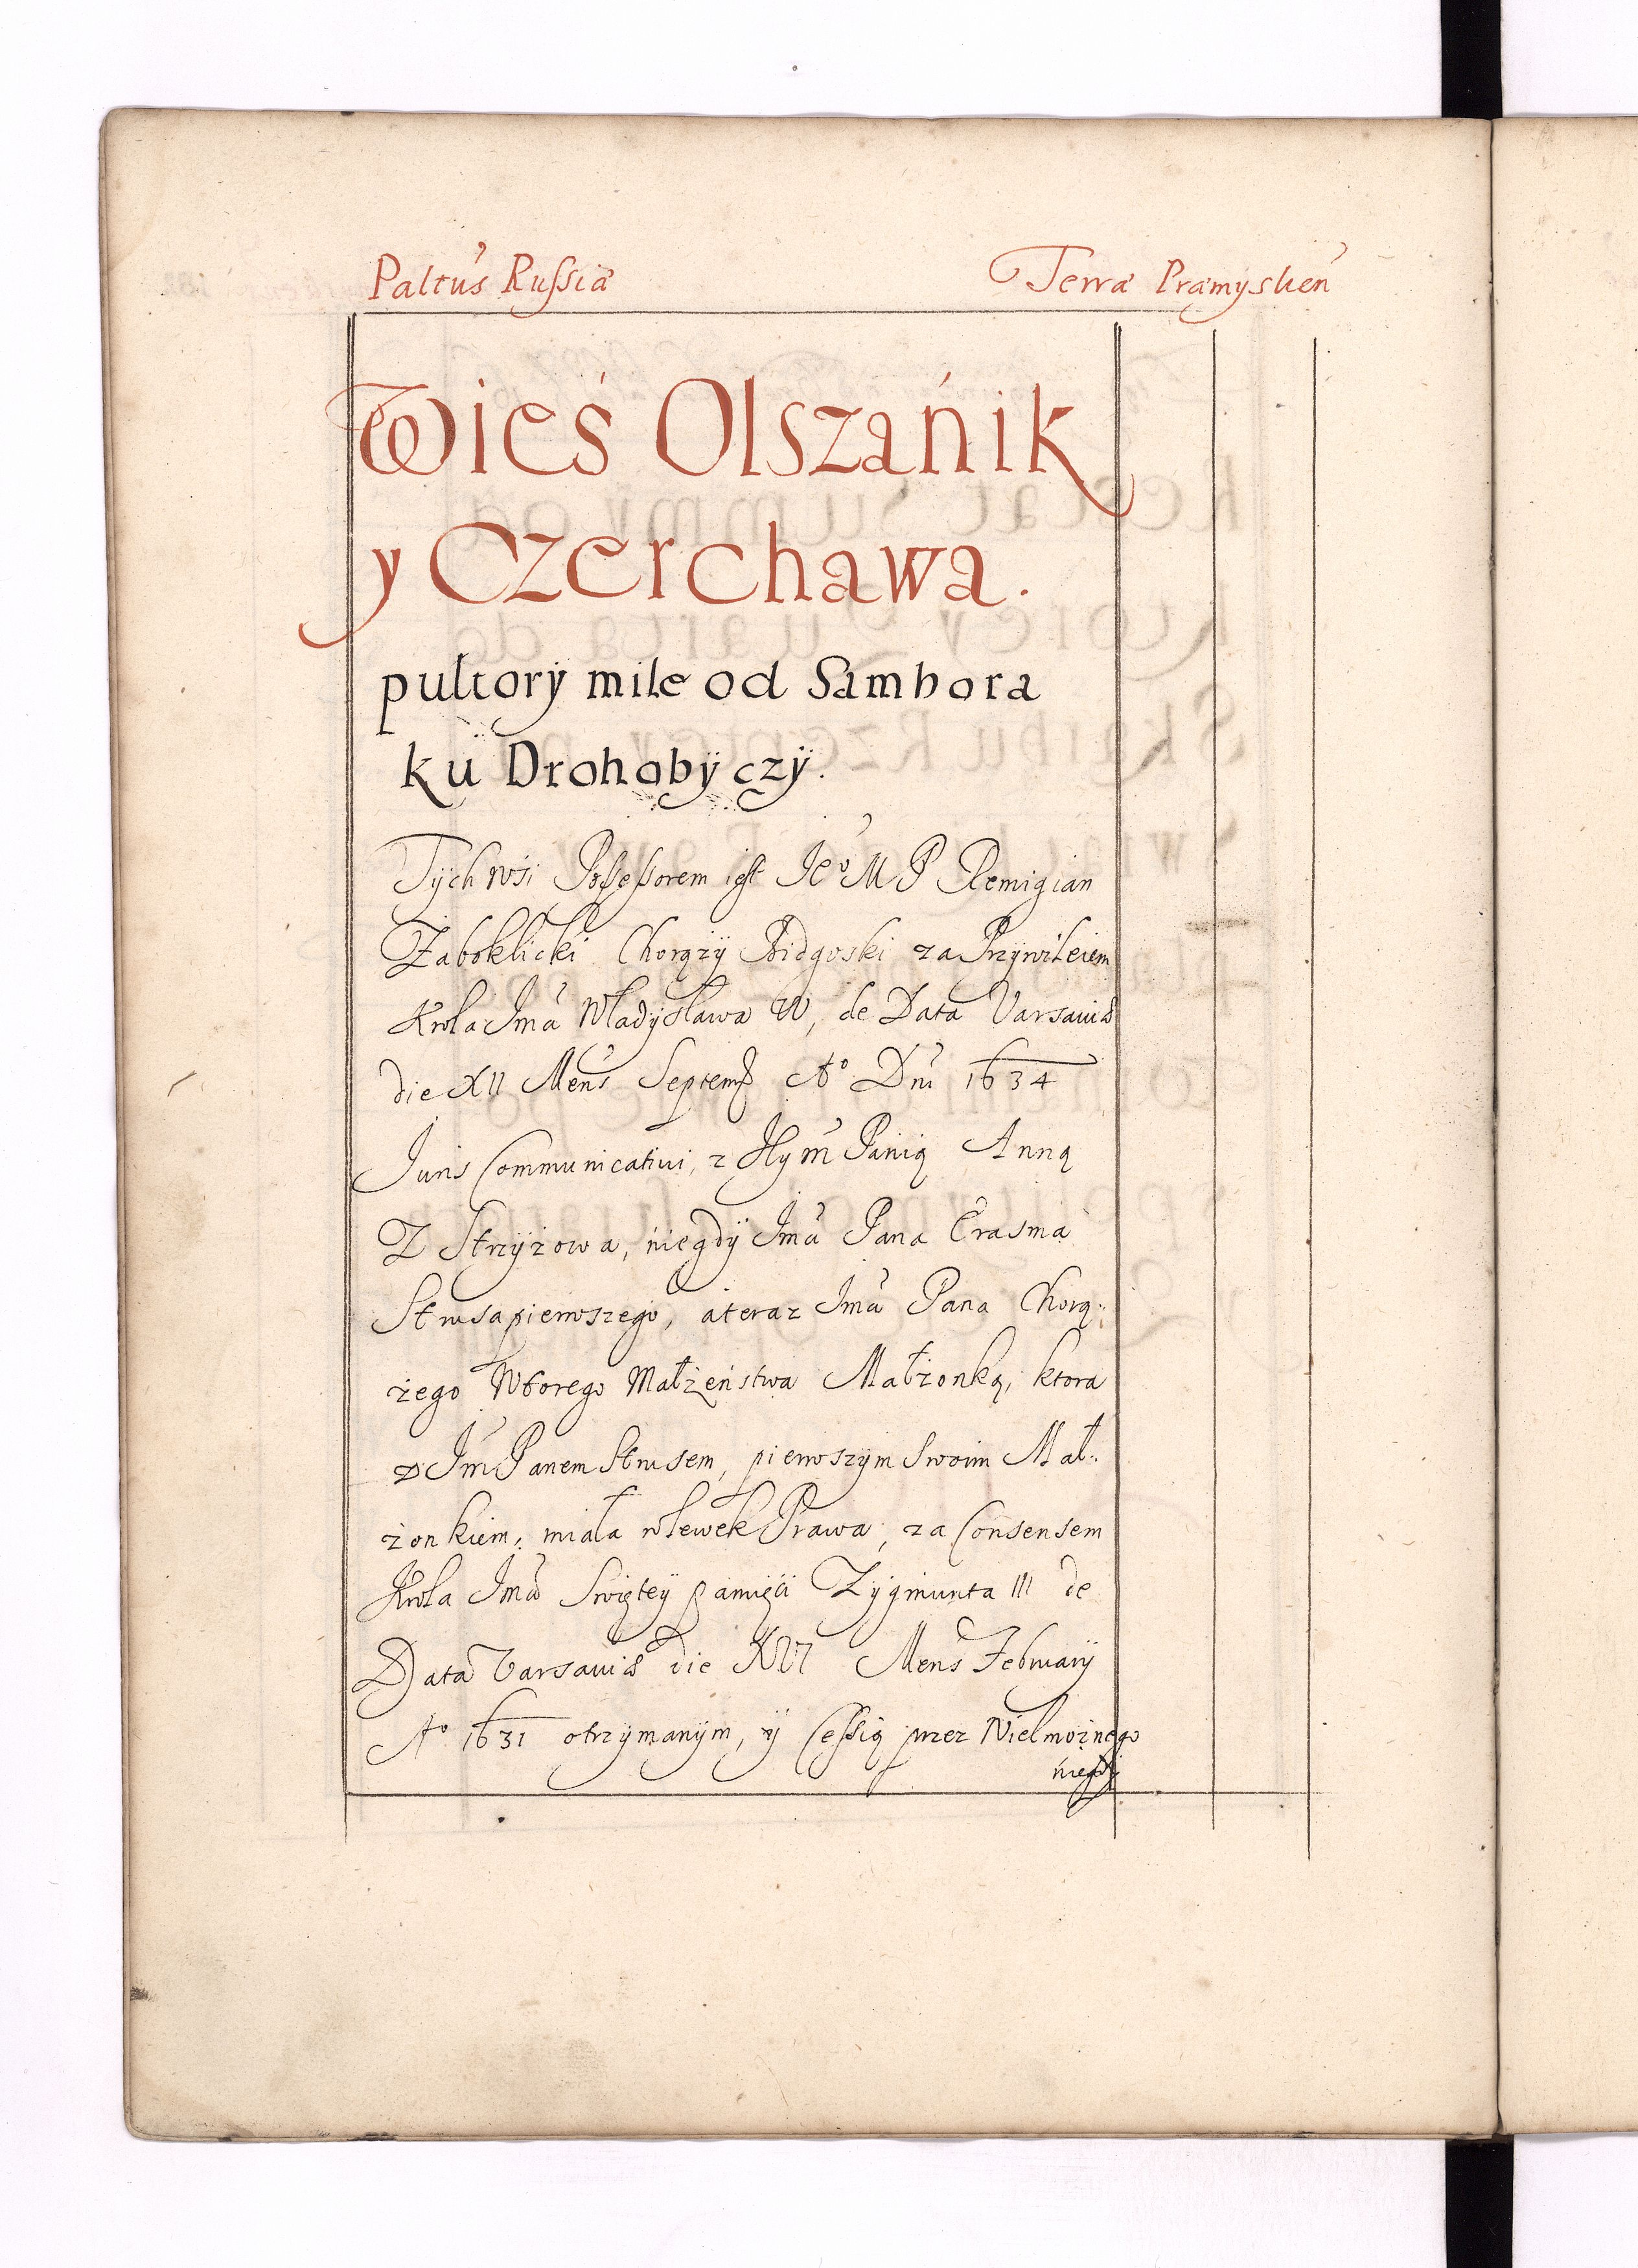 Paltus Russiæ Terræ Præmyslien
Wieś Olszánik
y Czerchawa.
pultorÿ mile od Sambora
ku Drohobÿczÿ.
Tÿch wsi Possessorem iest Jeº M P Remigian
Zaboklicki Chorąży Bidgoski za Przÿwileiem
Krola Jmci Władÿsława IV, de Data Varsauiæ
die XII Mens Septemb Aº Dni 1634
Juris Communicatiui, z Jey M Panią Anną
Z Strzÿżowa, niegdÿ Jmci Pana Erasma
Strusa pierwszego, a teraz Jmci Pana Chorą:
żego Wtorego Małżeństwa Małżonką, ktora
z Jm Panem Strusem, pierwszÿm Swoim Mał:
żonkiem, miała wlewek Prawa, za Consensem
Krola Jmci Swiętÿ pamięci Zÿgmunta III de
Data Varsauiæ die XVI Mens Februarÿ
Aº 1631 otrzÿmanÿm, ÿ Cessią przez Wielmożnego
niegdÿ